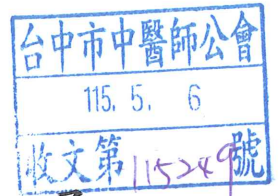 台中市中醫師公會
115. 5. 6
收文第115249號